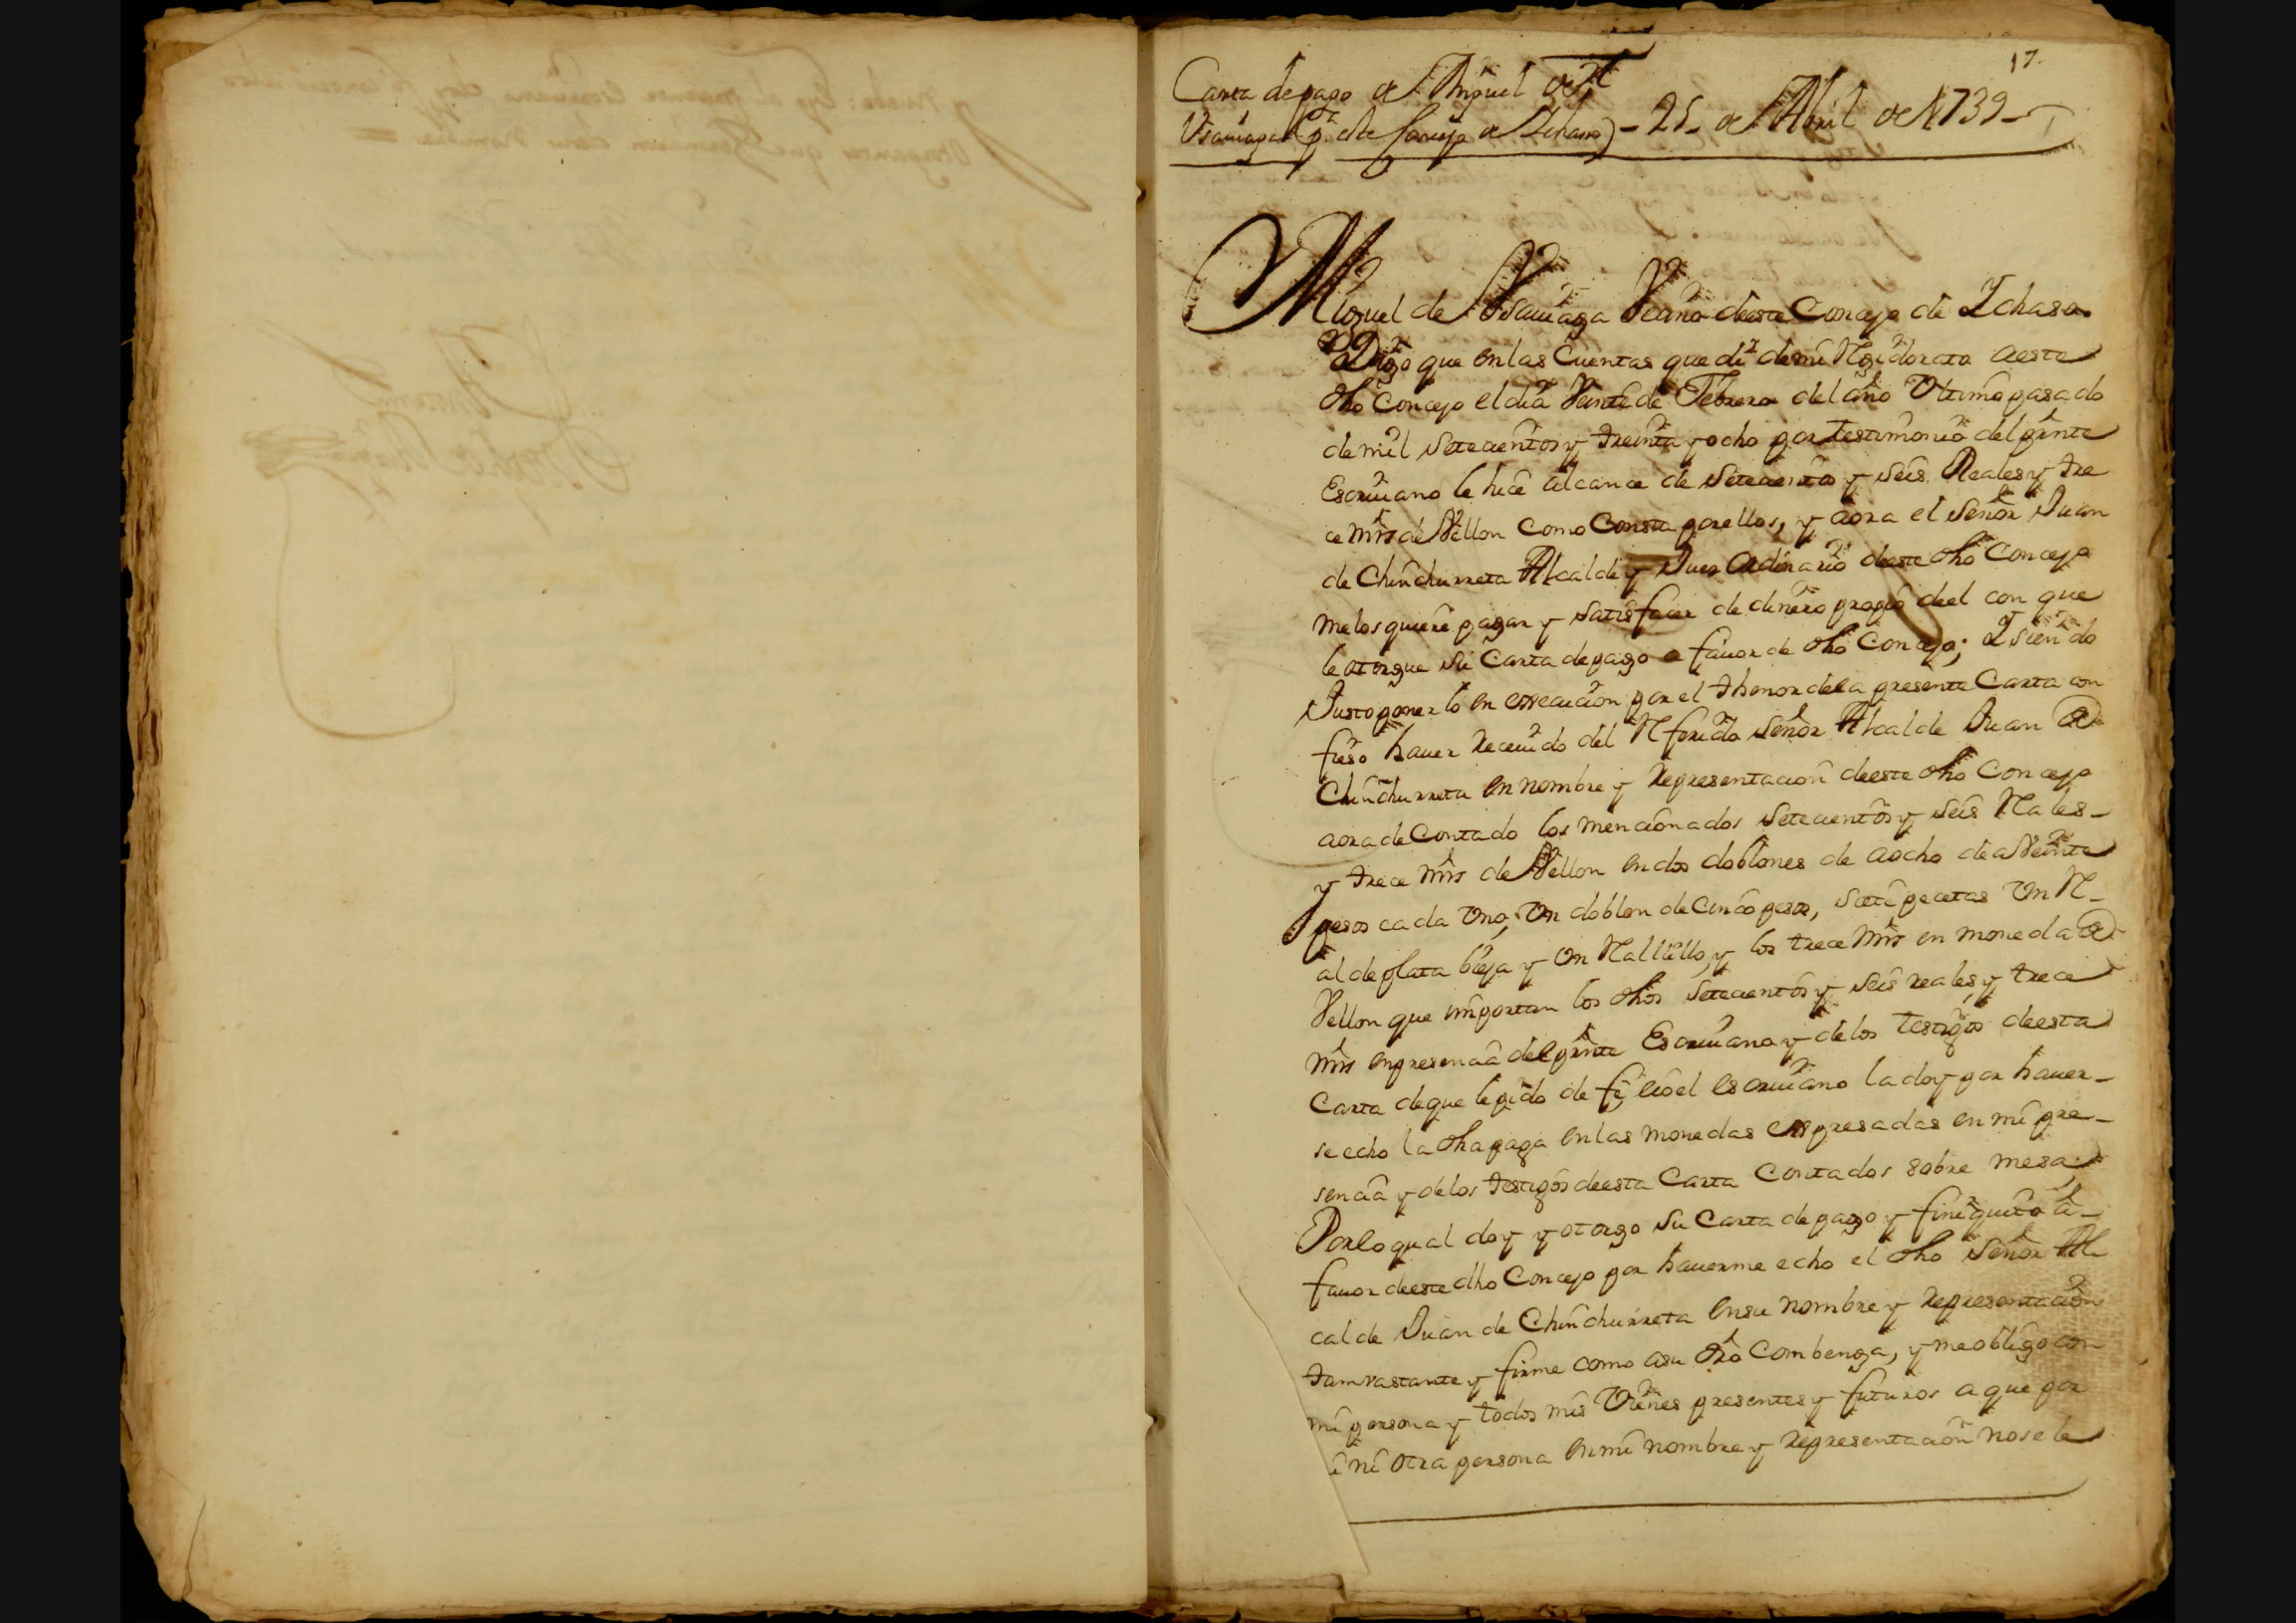 17
Carta de pago de Miguel de
Vsauiaga pa. este Conzejo de Ichaso - 25 de Abril de 1739
Miguel de Vsauiaga Vecino deeste Concejo de Ichaso.
Digo que en las Cuentas que di de mi Rexidorato aeste
dho Concejo el dia Veinte de Febrero del año Vltimo pasado
de mil setecientos y treinta y ocho por testimonio del prnte
Escriuano le hice alcance de setecientos y seis Reales y tre
ce mrs de Vellon como Consta por ellos, y aora el señor Juan
de Chinchurreta Alcalde y Juez ordinario deeste dho Concejo
me los quiere pagar y satisfacer de dinero propio deel con que
le otorgue su Carta de pago a fauor de dho Concejo; I siendo
Justo ponerlo en execucion por el thenor dela presente Carta con
fieso hauer receuido del Referido señor Alcalde Juan de
Chinchurreta en nombre y representacion deeste dho Concejo
aora de Contado los mencionados setecientos y seis Rales -
y trece mrs de Vellon en dos doblones de aocho de a Veinte
pesos cada Vno, Vn doblon de Cinco pesos, siete pecetas Vn R-
al de plata bieja y Vn Ralillo, y los trece mrs en moneda de
Vellon que importan los dhos setecientos y seis reales y trece
mrs en presencia del prnte Escriuano y de los testigos deesta
Carta de que le pido de fe, e io el escriuano la doy por hauer-
se echo la dha paga en las monedas expresadas en mi pre-
sencia y delos testigos deesta Carta Contados sobre mesa;
Por lo qual doy y otorgo su Carta de pago y finiquito a -
fauor deeste dho Concejo por hauerme echo el dho señor Al
calde Juan de Chinchurreta en su nombre y representacion
tam vastante y firme como a su dro Combenga, y me obligo con
mi persona y todos mis Vienes presentes y futuros a que por
i ni otra persona en mi nombre y representacion no se le